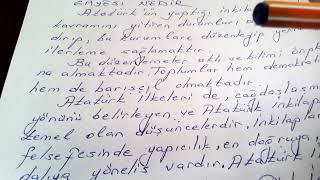 GAYESİ NEDİR
Atatürk'ün yaptığı inkıla
kavramını yitiren durumları
dirip, bu kurumları düzenleyip
ilerleme sağlamaktır.
Bu düzenlemeler aklı ve bilimi önp
na almaktadır. Toplumlar hem demokrati
hem de barışsel olmaktadır.
Atatürk ilkeleri de çağdaşlaşma
yönünü belirleyen ve Atatürk inkılap
temel olan düşüncelerdir. inkılaplar
felsefesinde yapıcılık, en doğruya,
daliya yöneliş vardır. Atatürk i